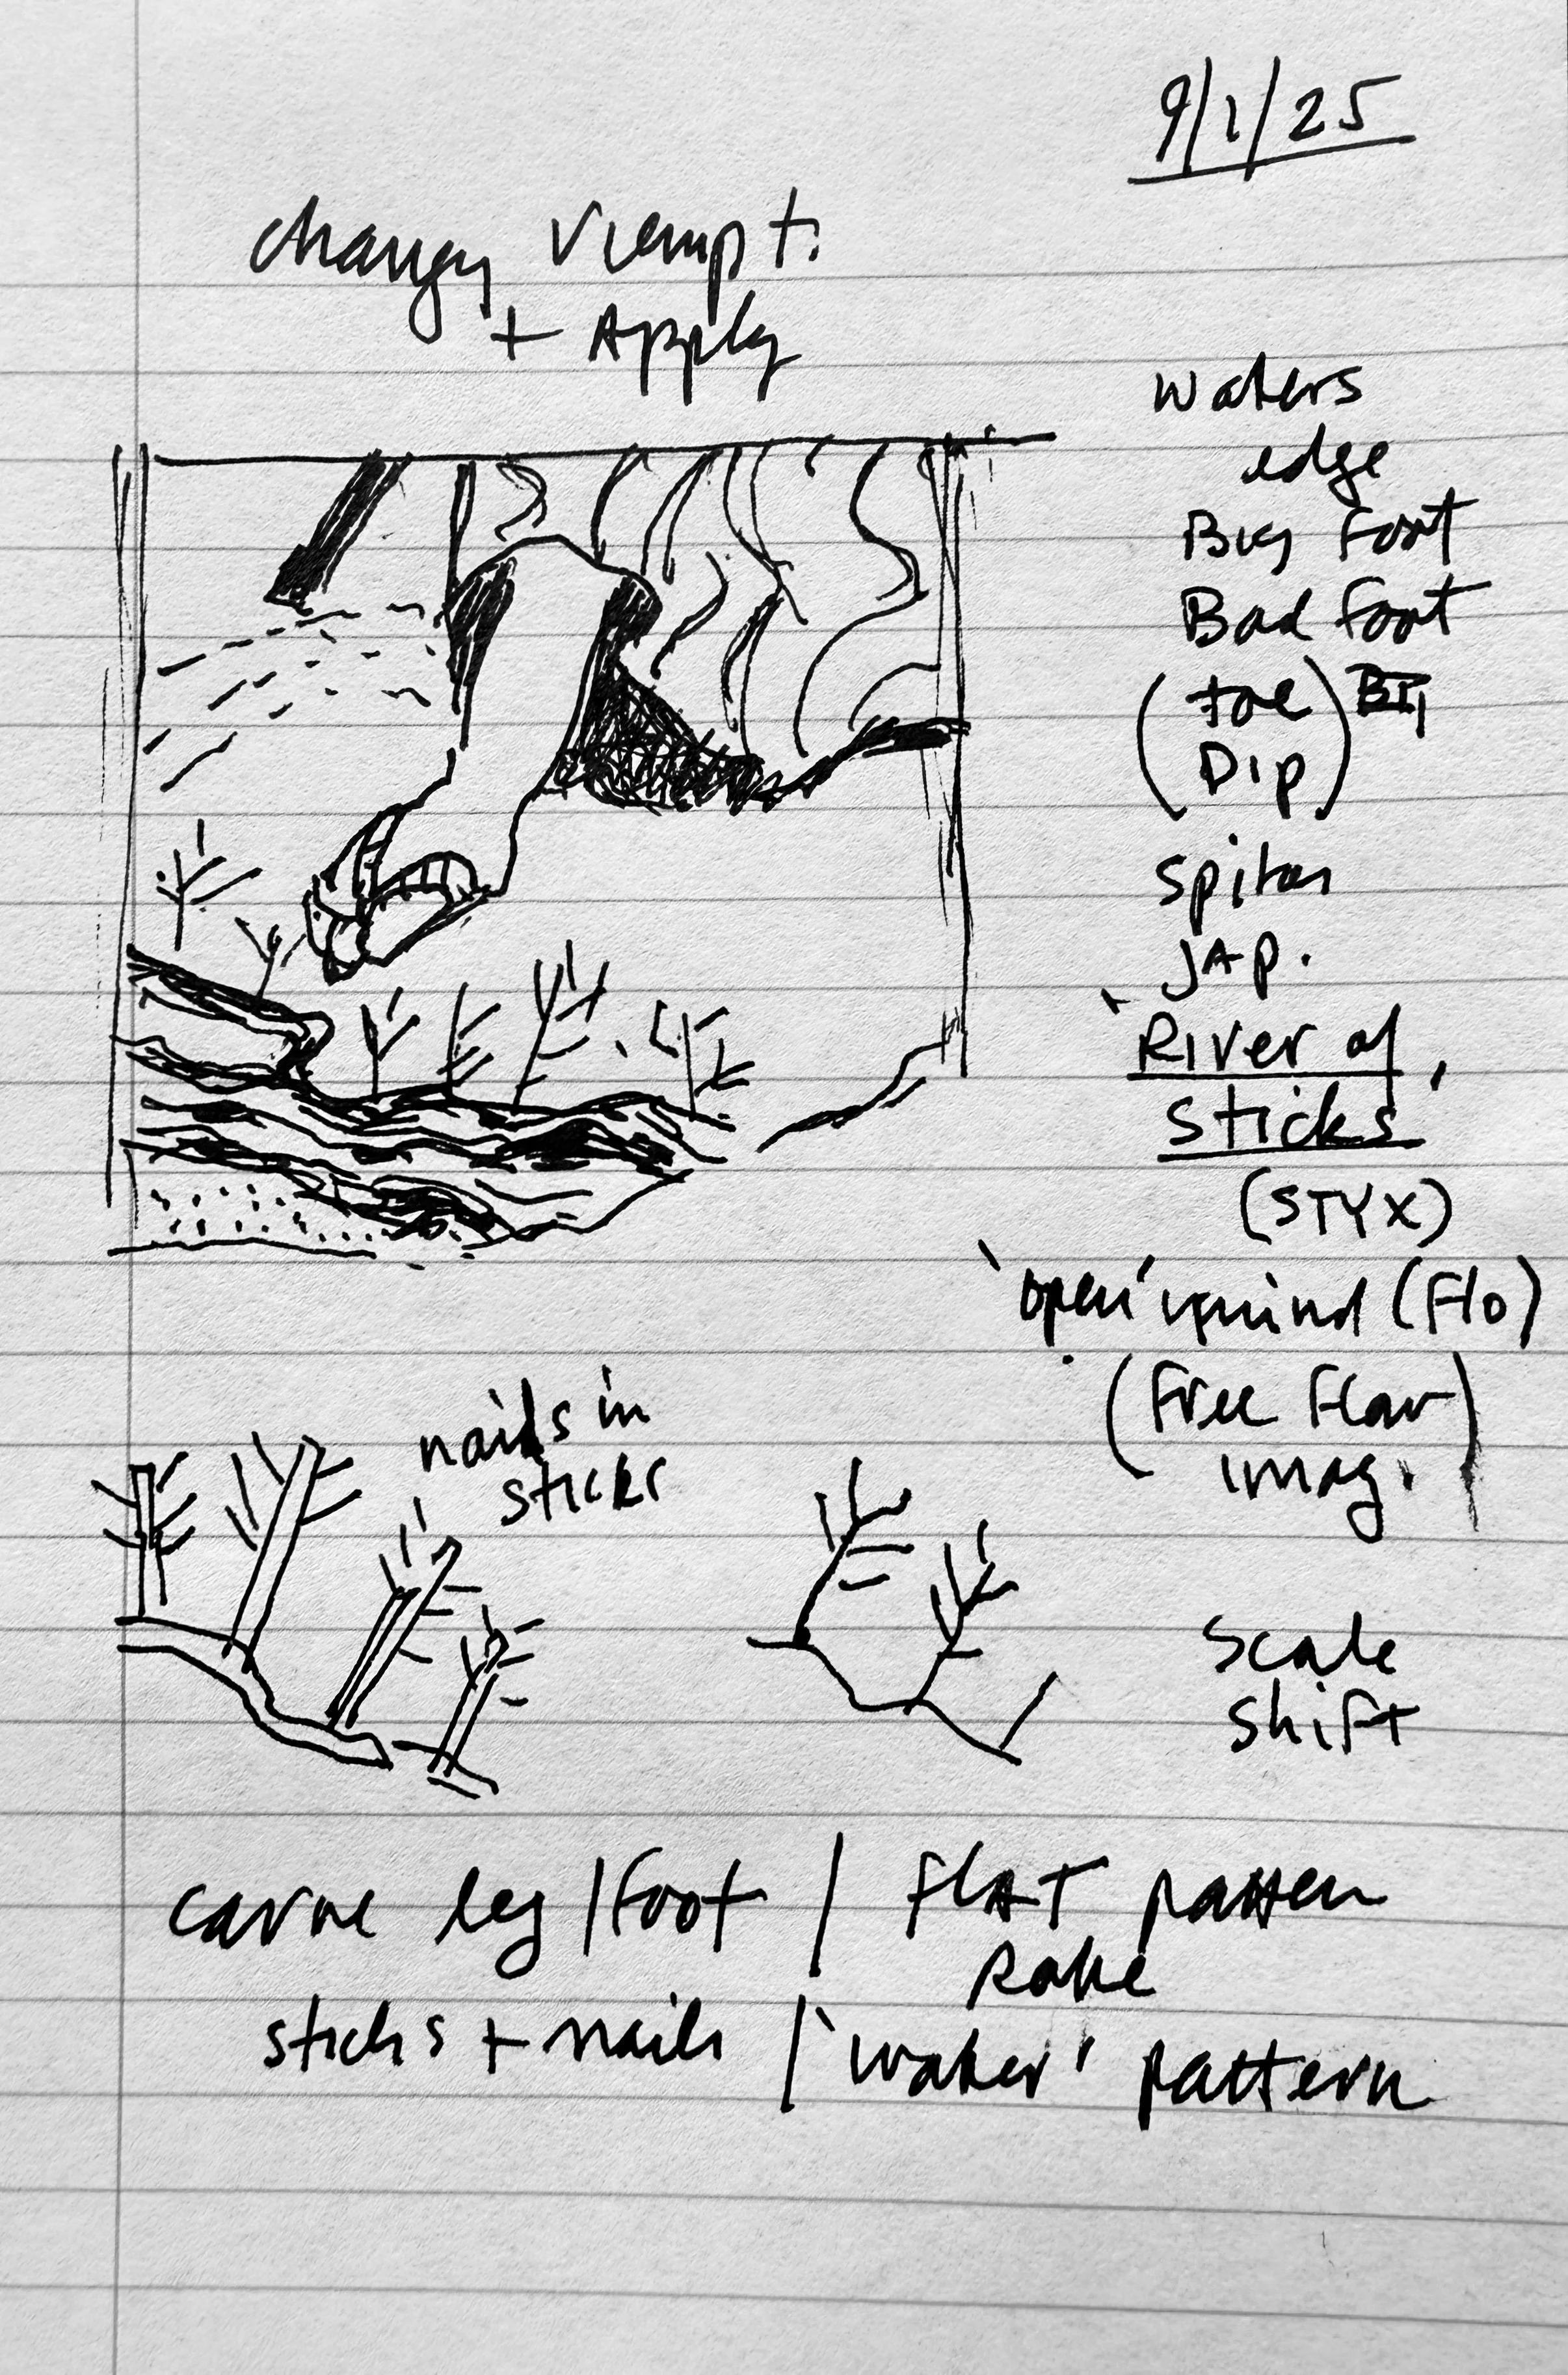 9/1/25
change viewpt.
+ Apply
waters
edge
Big Foot
Bad Foot
(toe)
(Dip)
JAP.
'River of
Sticks'
(STYX)
'open' mind (Flo)
(Free Flow
imag.)
nails in
sticks
Scale
Shift
carve leg/Foot / FLAT pattern
Rake
sticks + nails / 'water' pattern